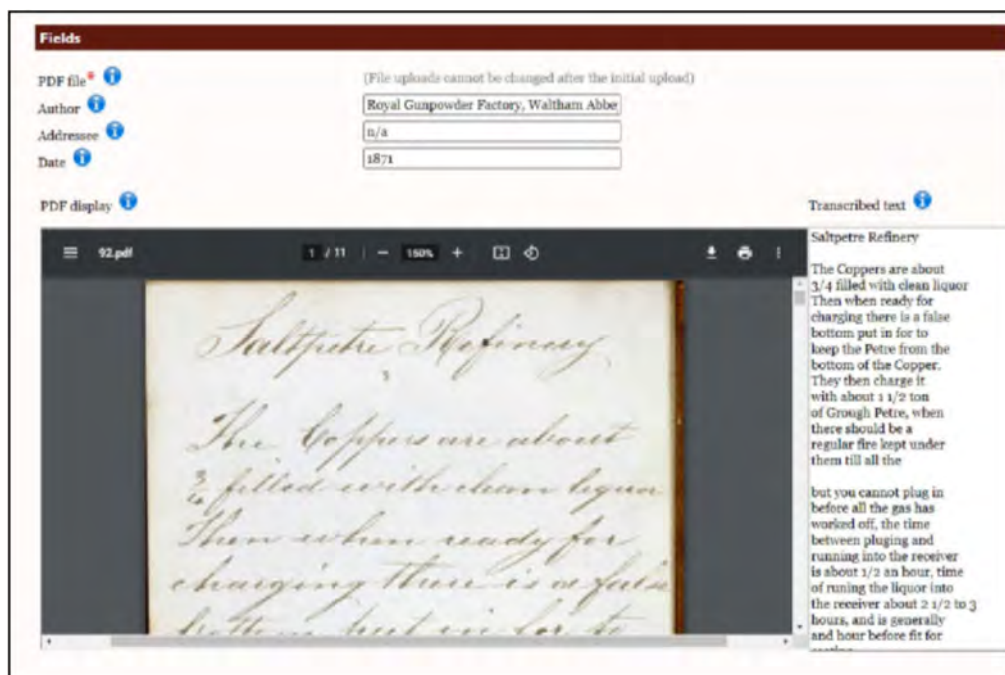 Fields
PDF file*
(File uploads cannot be changed after the initial upload)
Author
Royal Gunpowder Factory, Waltham Abbe
Addressee
n/a
Date
1871
PDF display
Transcribed text
92.pdf
1 / 11
150%
Saltpetre Refinery
3
The Coppers are about
3/4 filled with clean liquor
Then when ready for
charging there is a false
bottom put in for to
Saltpetre Refinery
The Coppers are about
3/4 filled with clean liquor
Then when ready for
charging there is a false
bottom put in for to
keep the Petre from the
bottom of the Copper.
They then charge it
with about 1 1/2 ton
of Grough Petre, when
there should be a
regular fire kept under
them till all the
but you cannot plug in
before all the gas has
worked off, the time
between pluging and
running into the receiver
is about 1/2 an hour, time
of runing the liquor into
the receiver about 2 1/2 to 3
hours, and is generally
and hour before fit for